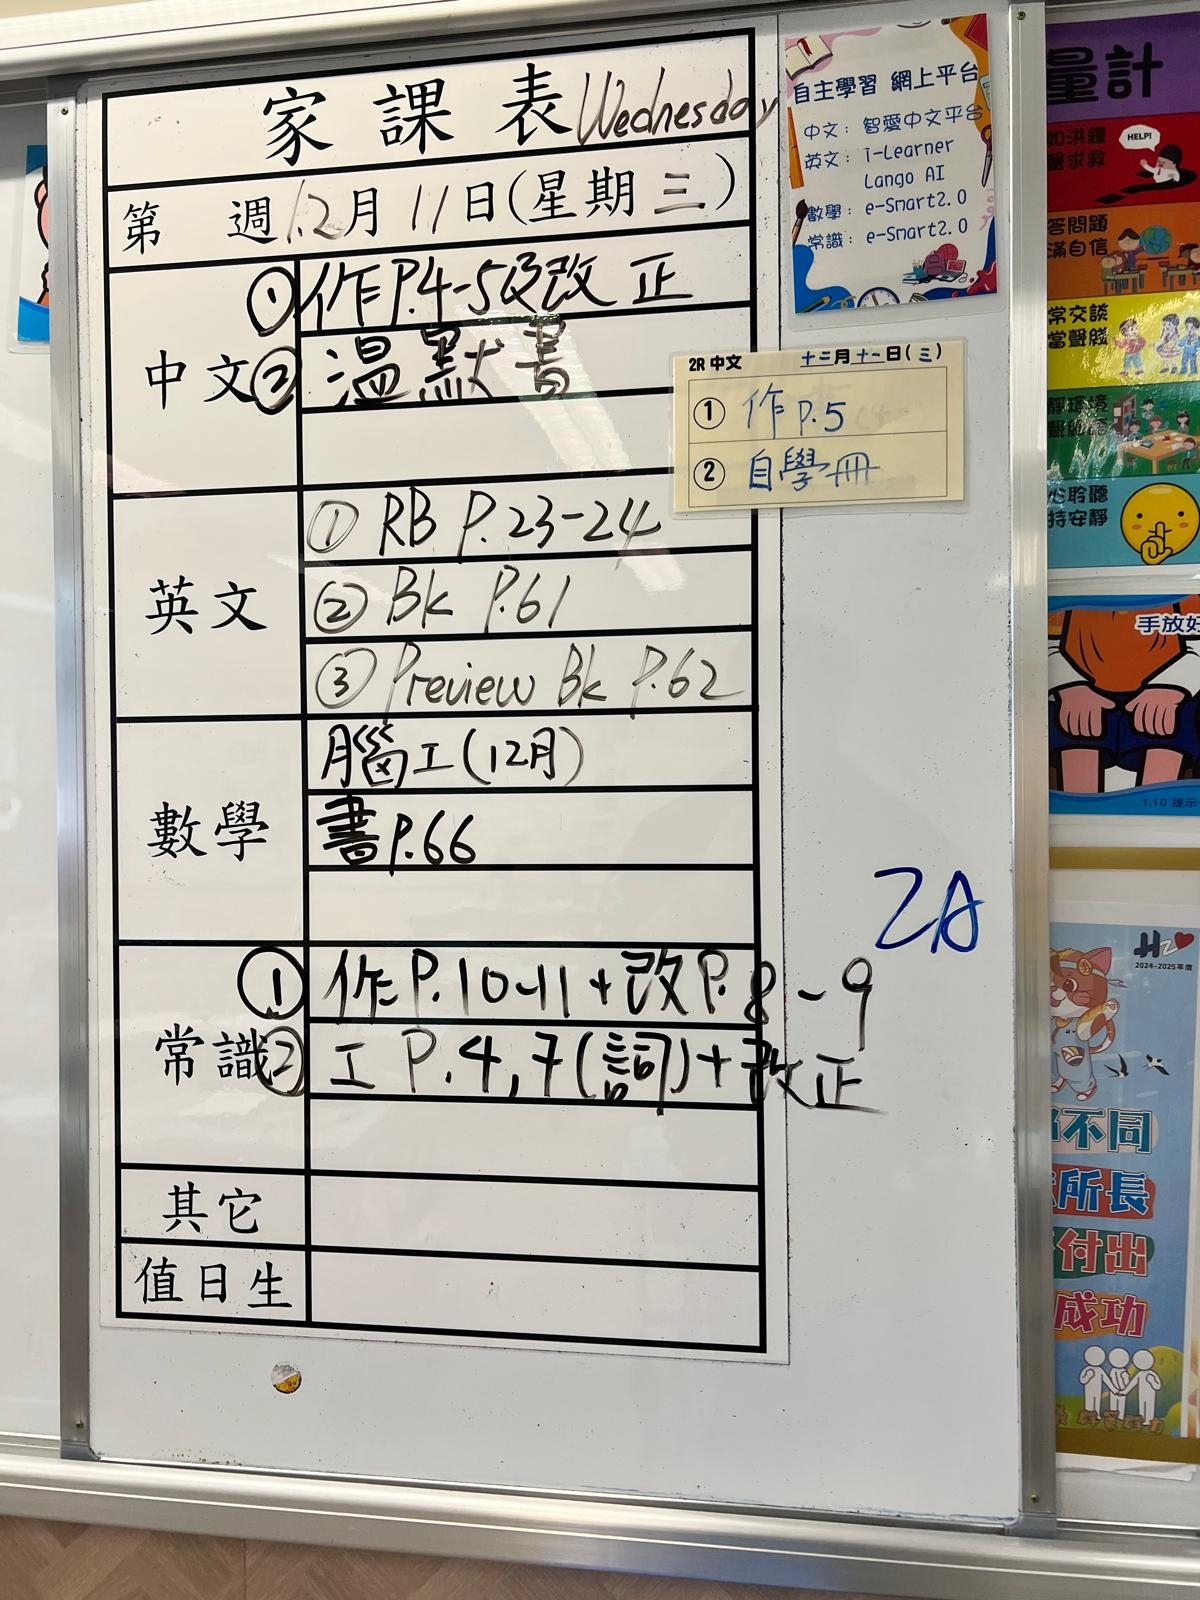 家課表 Wednesday
第 週 12月11日(星期三)
中文
① 作P.4-5及改正
② 溫默書
英文
① RB P.23-24
② Bk P.61
③ Preview Bk P.62
數學
腦工(12月)
書P.66
常識
① 作P.10-11+改P.8-9
② 工P.4,7(詞)+改正
其它
值日生
自主學習 網上平台
中文：智愛中文平台
英文：i-Learner
Lango AI
數學：e-Smart2.0
常識：e-Smart2.0
2R 中文 十二月十一日(三)
① 作P.5
② 自學冊
2A
量計
如洪鐘
聲求救
HELP!
答問題
滿自信
常交談
當聲賤
靜環境
心聆聽
持安靜
手放好
1.10 提示
2024-2025年度
不同
所長
付出
成功